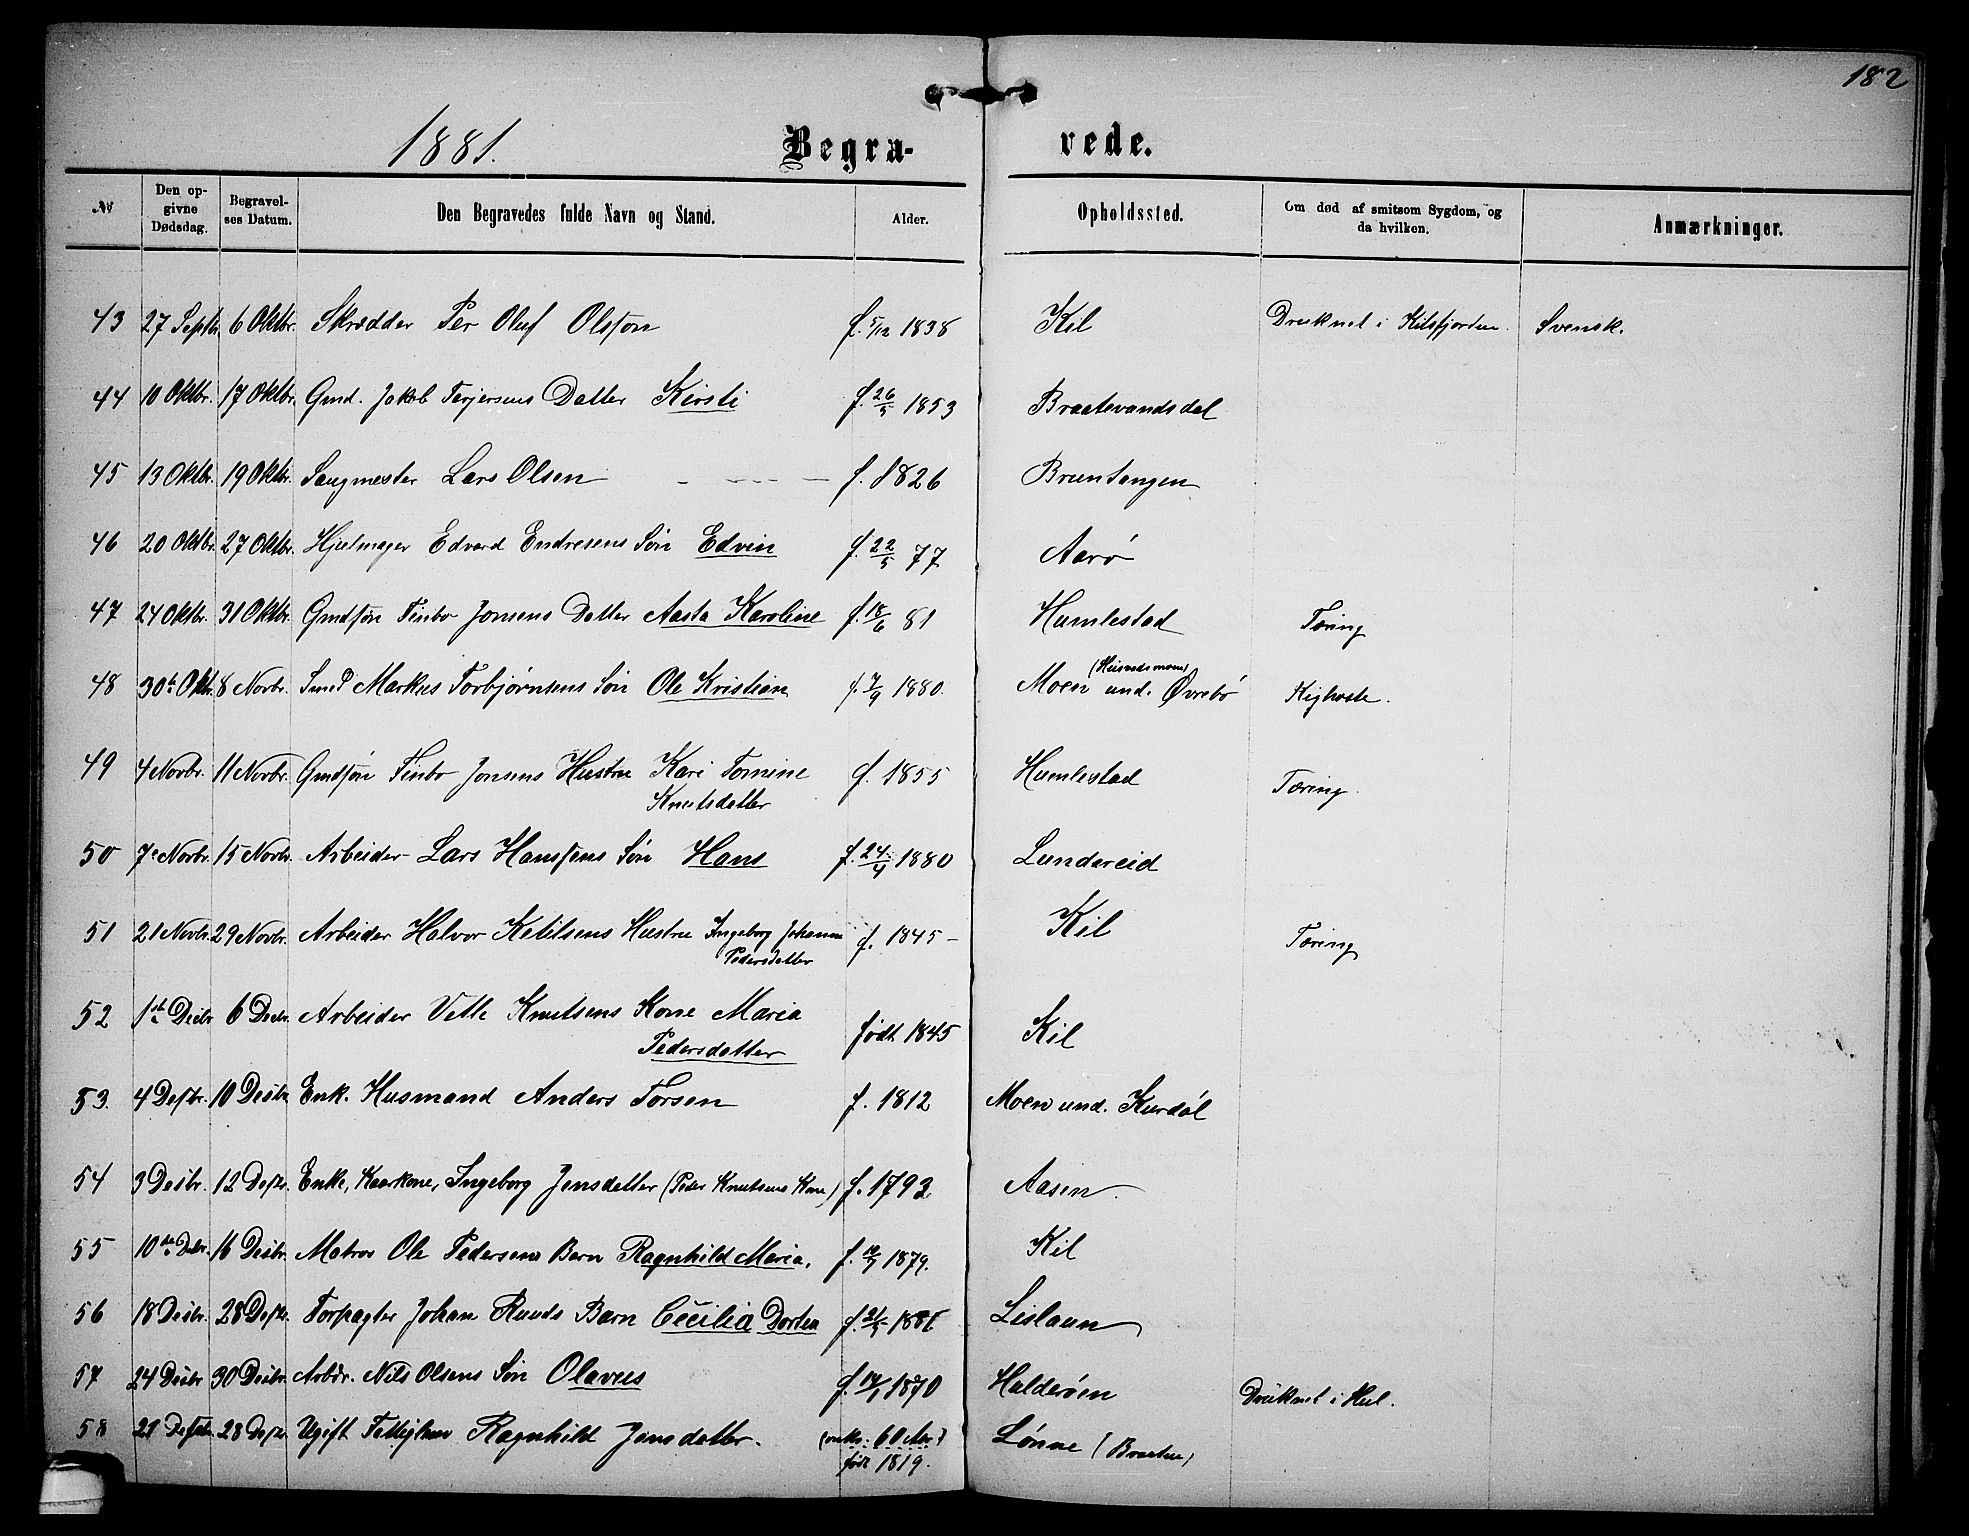 182
1881.
Begra-
vede.
№ Den op-givne Dødsdag. Begravel-ses Datum. Den Begravedes fulde Navn og Stand. Alder. Opholdssted. Om død af smitsom Sygdom, og da hvilken. Anmærkninger.
43 27 Septbr. 6 Oktbr. Skrædder Per Oluf Olsson f. 5/12 1838 Kil Druknet i Kilsfjorden. Svensk.
44 10 Oktbr. 17 Oktbr. Gmd. Jakob Terjersens Datter Kirsti f. 26/5 1853 Braatevandsdal
45 13 Oktbr. 19 Oktbr. Saugmester Lars Olsen f. 1826 Bruntangen
46 20 Oktbr. 27 Oktbr. Hjulmager Edvard Endresens Søn Edvin f. 22/5 77 Aarø
47 24 Oktbr. 31 Oktbr. Gmdsøn Finbo Jonsens Datter Aasta Karoline f. 18/6 81 Humlestad Tæring
48 30te Oktbr. 8 Novbr. Smed Markus Torbjørnsens Søn Ole Kristian f. 7/9 1880. Moen und. Øvrebø Kighoste.
49 4 Novbr. 11 Novbr. Gmdsøn Finbo Jonsens Hustru Kari Tomine f. 1855 Humlestad Tæring.
Knutsdatter
50 7de Novbr. 15 Novbr. Arbeider Lars Hanssens Søn Hans f. 24/4 1880 Lundereid
51 21 Novbr. 29 Novbr. Arbeider Halvor Ketilsens Hustru Ingeborg Johanne f. 1845- Kil Tæring
Pedersdatter
52 1ste Desbr 6 Desbr. Arbeider Vetle Knutsens Kone Maria født 1845 Kil
Pedersdatter
53. 4 Desbr. 10 Desbr. Enk. Husmand Anders Torsen f. 1812 Moen und. Kurdøl
54 3 Desbr. 12 Desbr. Enke, Kaarkone, Ingeborg Jensdatter (Peder Knutsens Kone) f. 1793 Aasen.
55 10de Desbr. 16 Desbr. Matros Ole Pedersens Barn Ragnhild Maria. 1879. Kil
56 18 Desbr. 28 Desbr. Forpagter Johan Ruuds Barn Cecilia Dortea 1881 Leslaun
57 24 Desbr 30 Desbr. Arbdr. Nils Olsens Søn Olavus 1870 Halderøen Druknet i Kil.
58 21 Desbr. 28 Desbr. Ugift Fattiglem Ragnhild Jensdatter. (omkr. 60 Aar) Lønne (Braaten)
født 1819.